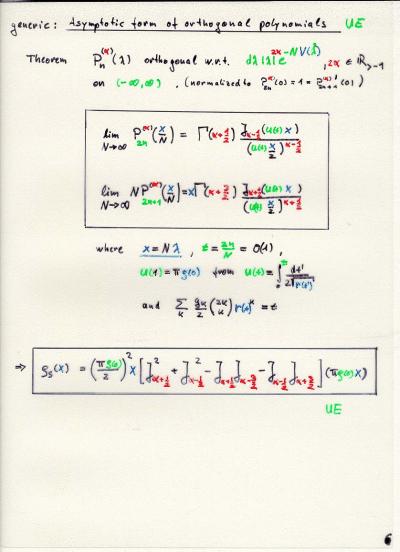 generic: Asymptotic form of orthogonal polynomials UE
Theorem P_n^(α)(λ) orthogonal w.r.t. dλ |λ|^2α e^-NV(λ), 2α ∈ ℝ_>-1
on (-∞,∞), (normalized to P_2n^(α)(0) = 1 = P_2n+1^(α)'(0))
lim N→∞ P_2n^(α)(x/N) = Γ(α+1/2) J_α-1/2(u(t)x) / (u(t) x/2)^α-1/2
lim N→∞ N P_2n+1^(α)(x/N) = x Γ(α+3/2) J_α+1/2(u(t)x) / (u(t) x/2)^α+1/2
where x = Nλ, t = 2n/N = O(1),
u(1) = πρ(0) from u(t) = ∫_0^t dt' / 2√r(t')
and Σ_k g_k/2 (2k k) r(t)^k = t
⇒ ρ_s(x) = (πρ(0)/2)^2 x [J^2_α+1/2 + J^2_α-1/2 - J_α+1/2 J_α-3/2 - J_α-1/2 J_α+3/2] (πρ(0)x)
UE
6